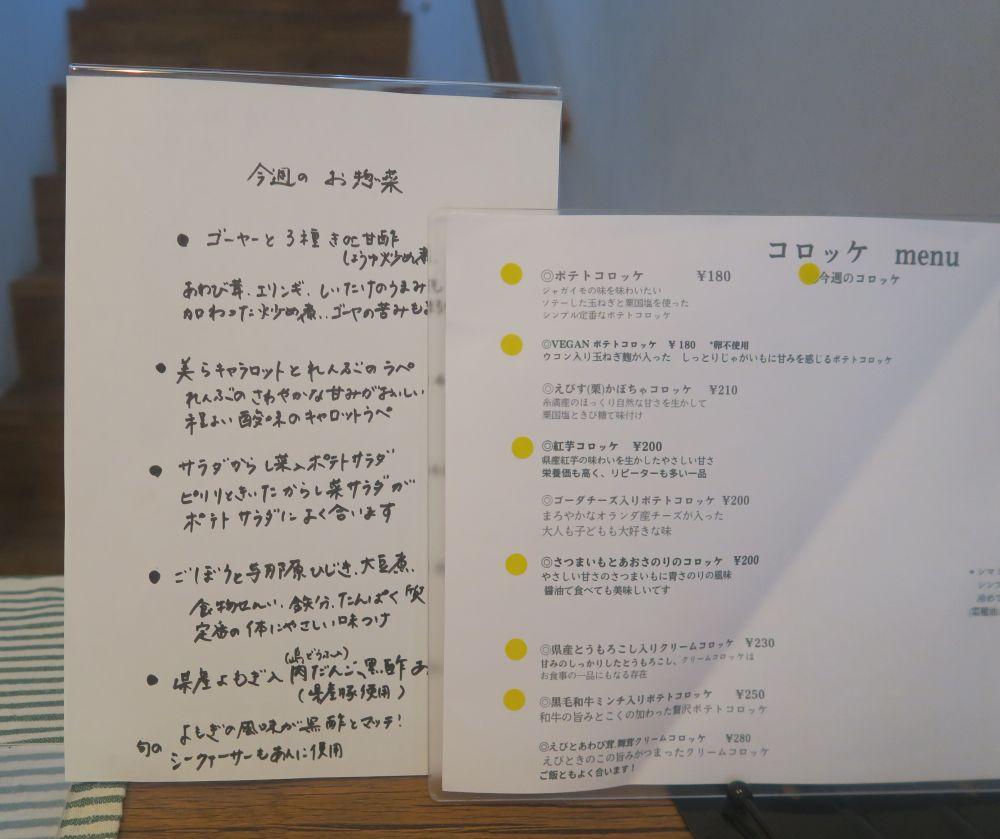 今週の お惣菜
● ゴーヤーと3種きのこ甘酢
しょうゆ炒め煮
あわび茸、エリンギ、しいたけのうまみ
加わった炒め煮、ゴーヤの苦みも
● 美らキャラロットとれんこんのラペ
れんこんのさわやかな甘みがおいしい
程よい酸味のキャロットラペ
● サラダからし菜入ポテトサラダ
ピリリときいたからし菜サラダが
ポテトサラダによく合います
● ごぼうと与那原ひじき、大豆煮
食物せんい、鉄分、たんぱく質
定番の体にやさしい味つけ
(島どうふ入)
● 県産よもぎ入肉だんご、黒酢あ
(県産豚使用)
よもぎの風味が黒酢とマッチ!
旬の シークァーサーもあんに使用
コロッケ menu
今週のコロッケ
◎ポテトコロッケ ¥180
ジャガイモの味を味わいたい
ソテーした玉ねぎと粟国塩を使った
シンプル定番なポテトコロッケ
◎VEGAN ポテトコロッケ ¥180 *卵不使用
ウコン入り玉ねぎ麹が入った しっとりじゃがいもに甘みを感じるポテトコロッケ
◎えびす(栗)かぼちゃコロッケ ¥210
糸満産のほっくり自然な甘さを生かして
粟国塩ときび糖で味付け
◎紅芋コロッケ ¥200
県産紅芋の味わいを生かしたやさしい甘さ
栄養価も高く、リピーターも多い一品
◎ゴーダチーズ入りポテトコロッケ ¥200
まろやかなオランダ産チーズが入った
大人も子どもも大好きな味
◎さつまいもとあおさのりのコロッケ ¥200
やさしい甘さのさつまいもに青さのりの風味
醤油で食べても美味しいてす
◎県産とうもろこし入りクリームコロッケ ¥230
甘みのしっかりしたとうもろこし、クリームコロッケは
お食事の一品にもなる存在
◎黒毛和牛ミンチ入りポテトコロッケ ¥250
和牛の旨みとこくの加わった贅沢ポテトコロッケ
◎えびとあわび茸、舞茸クリームコロッケ ¥280
えびときのこの旨みがつまったクリームコロッケ
ご飯ともよく合います!
* シマ
シンプ
冷めて
(菜種油